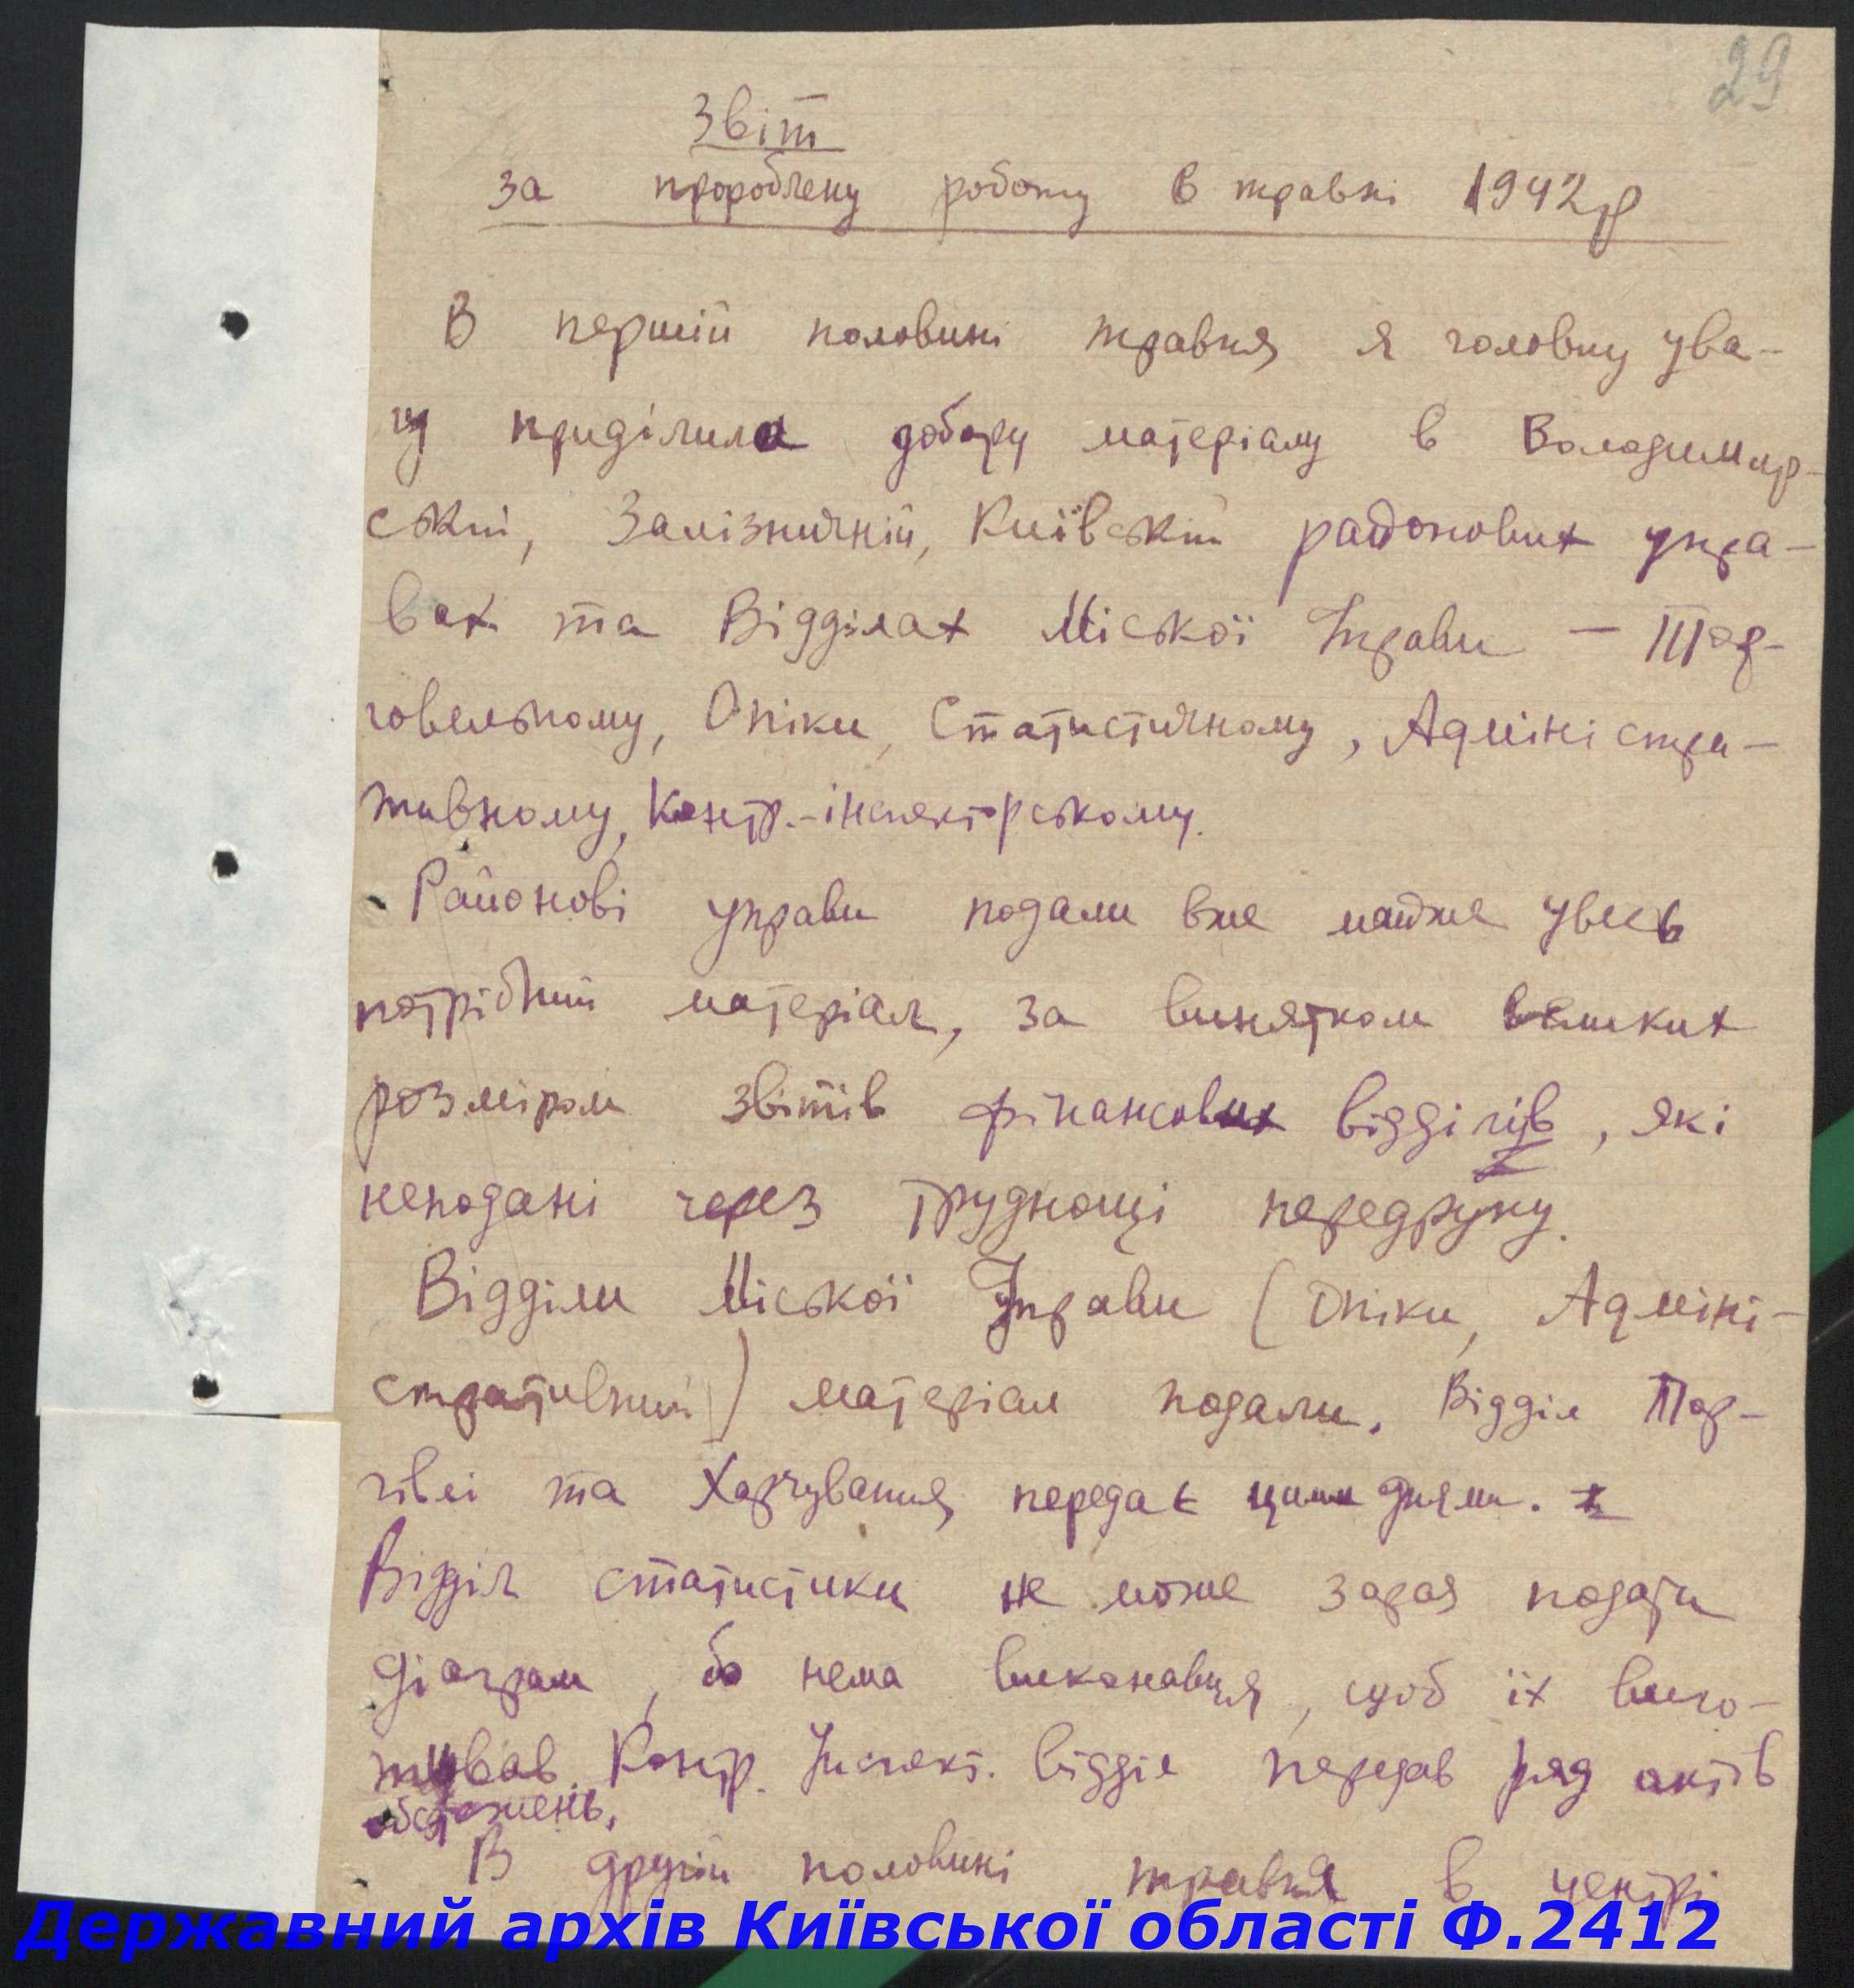 29
Звіт
за пророблену роботу в травні 1942р
В першій половині травня я головну ува-
гу приділила добору матеріалу в Володимир-
ській, Залізничній, Київській районових упра-
вах та Відділах Міської Управи — Тор-
говельному, Опіки, Статистичному, Адміністра-
тивному, Контр.-інспекторському.
Районові управи подали вже майже увесь
потрібний матеріал, за винятком великих
розміром звітів фінансових відділів, які
неподані через труднощі передруку.
Відділи Міської Управи (Опіки, Адміні-
стративний) матеріал подали. Відділ Тор-
гівлі та Харчування передає цими днями.
Відділ статистики не може зараз подати
діаграм, бо нема виконавця, щоб їх виго-
тував. Контр. Інспект. відділ передав ряд актів
обстежень.
В другій половині травня в центрі
Державний архів Київської області Ф.2412